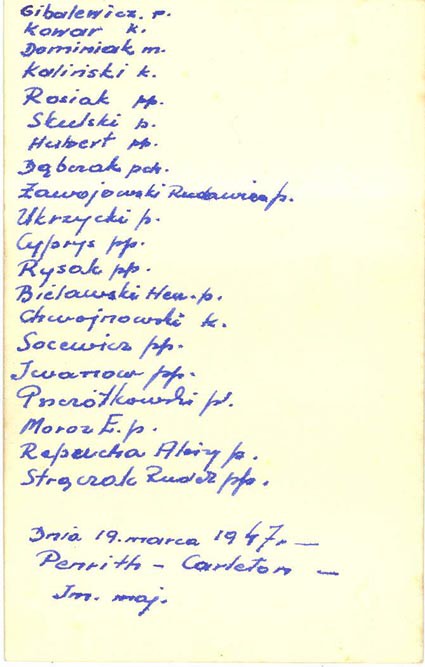 Gibalewicz. r.
Kowar k.
Dominiak m.
Kaliński k.
Rosiak pp.
Skulski p.
Hubert pp.
Dąbczak pch.
Zawojowski p.
Ukrzycki p.
Cyprys pp.
Rysak pp.
Bielawski Hen. p.
Chwojnowski k.
Socewicz pp.
Iwanow pp.
Pszczółkowski p.
Moroz E. p.
Repeucha p.
Strączak pp.
Dnia 19. marca 1947r —
Penrith – Carleton —
Im. maj.